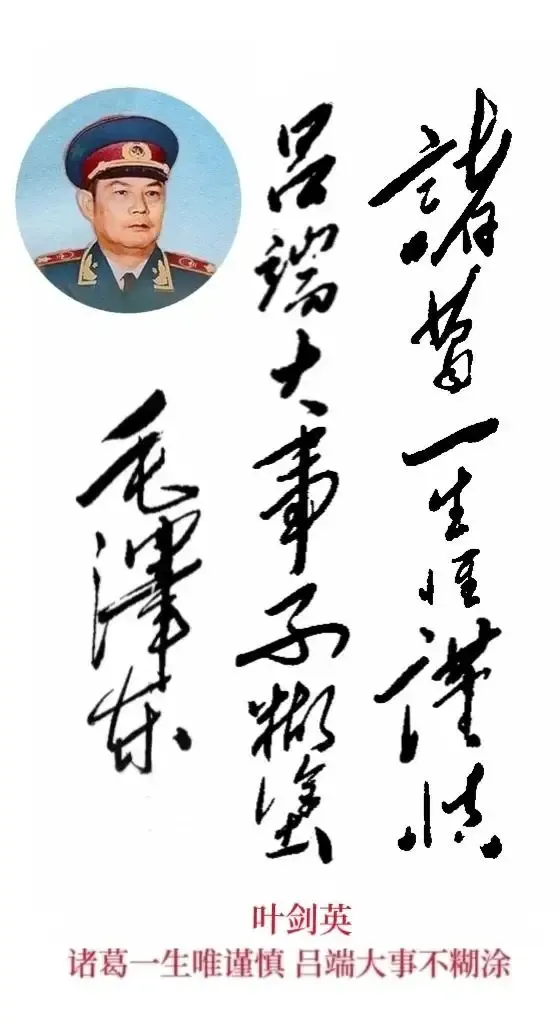 諸葛一生惟謹慎
吕端大事不糊塗
毛澤东
叶剑英
诸葛一生唯谨慎 吕端大事不糊涂